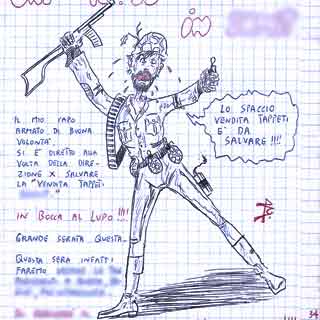 IL MIO CAPO
ARMATO DI BUONA
VOLONTÀ.
SI È DIRETTO ALLA
VOLTA DELLA DIRE-
ZIONE X SALVARE
LA "VENDITA TAPPETI
LO SPACCIO
VENDITA TAPPETI
E' DA
SALVARE !!!!
IN BOCCA AL LUPO!!!!
GRANDE SERATA QUESTA..
QUESTA SERA INFATTI
FAREMO
34